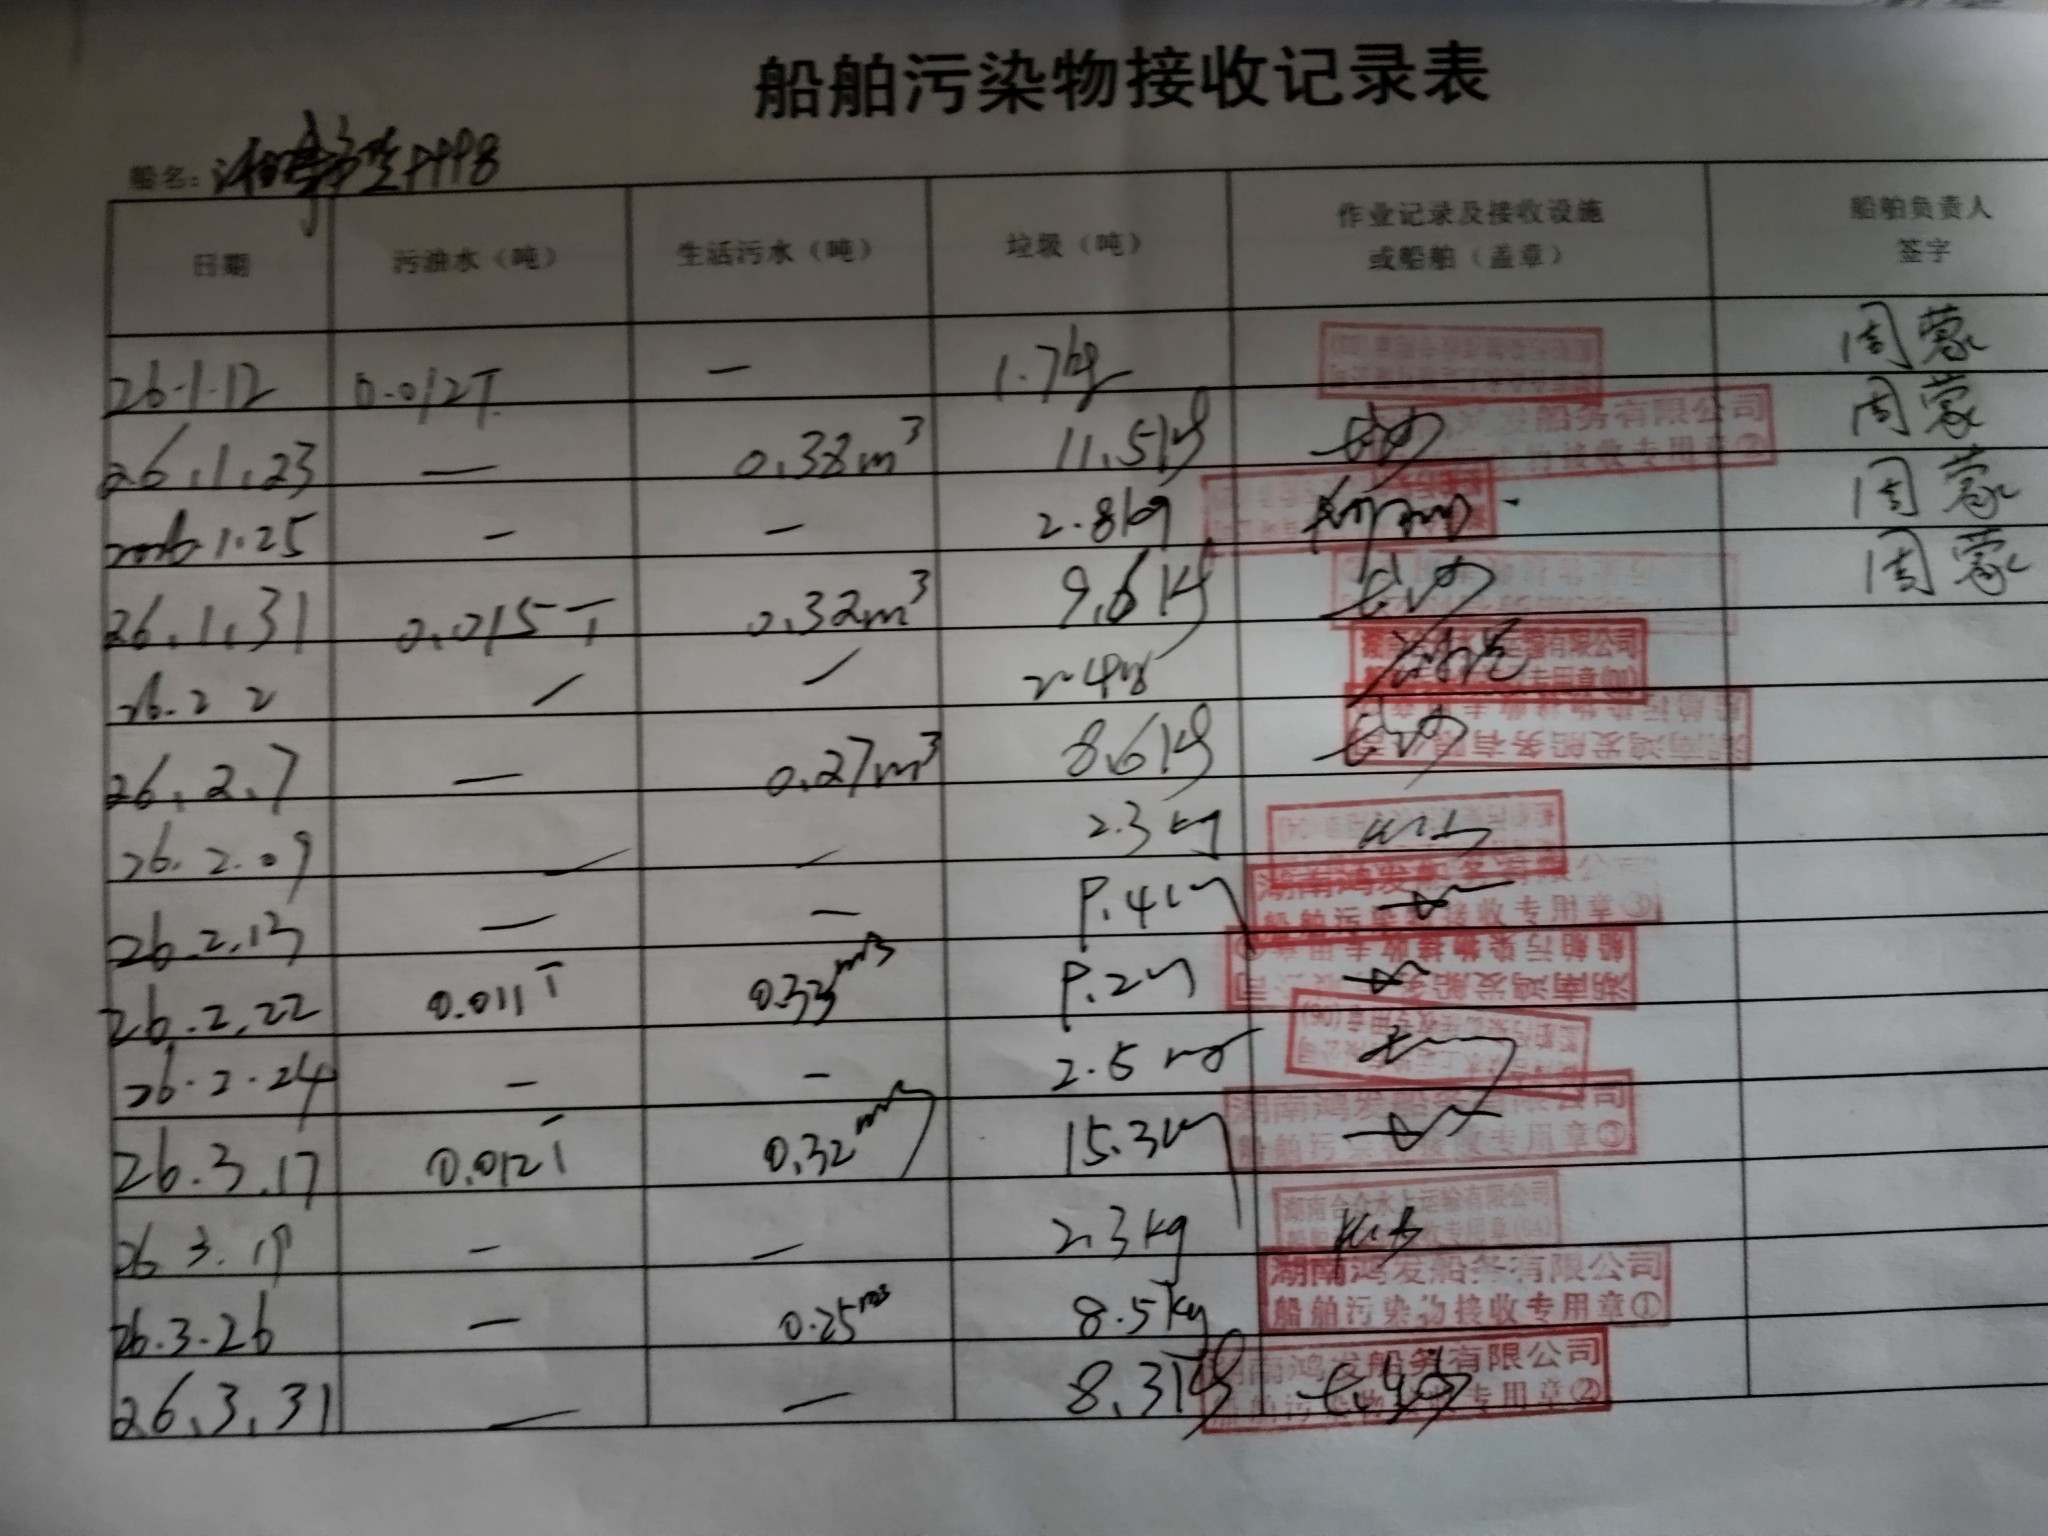 船舶污染物接收记录表
船名:
日期 污油水（吨） 生活污水（吨） 垃圾（吨） 作业记录及接收设施或船舶（盖章） 船舶负责人签字
26.1.12 0.012T — 1.7kg 周蒙
26.1.23 — 0.38m³ 11.5kg 长沙 鸿发船务有限公司 接收专用章② 周蒙
2026.1.25 — — 2.8kg 周蒙
26.1.31 0.015T 0.32m³ 9.6kg 长沙 周蒙
26.2.2 / / 2.4kg 运输有限公司 专用章(01)
26.2.7 — 0.27m³ 8.6kg 长沙 湖南鸿发船务有限公司 船舶污染物接收专用章
26.2.09 — — 2.3kg
26.2.13 — — 湖南鸿发船务有限公司 船舶污染物接收专用章③
26.2.22 0.011T 0.33m³ 湖南鸿发船务有限公司 船舶污染物接收专用章
26.2.24 — — 2.5kg
26.3.17 0.012T 0.32m³ 15.3kg 湖南鸿发船务有限公司 船舶污染物接收专用章③
26.3.19 — — 2.3kg 湖南合众水上运输有限公司 接收专用章(04)
26.3.26 — 0.25m³ 8.5kg 湖南鸿发船务有限公司 船舶污染物接收专用章①
26.3.31 — — 8.3kg 长沙 湖南鸿发船务有限公司 船舶污染物接收专用章②